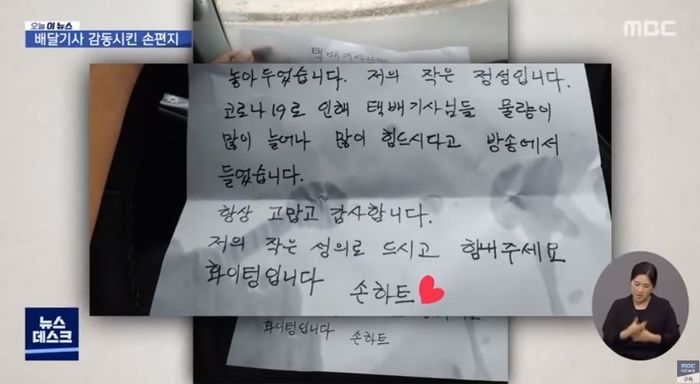 오늘 이 뉴스
배달기사 감동시킨 손편지
MBC
택배기사님께
놓아두었습니다. 저의 작은 정성입니다.
코로나19로 인해 택배기사님들 물량이
많이 늘어나 많이 힘드시다고 방송에서
들었습니다.
항상 고맙고 감사합니다.
저의 작은 성의로 드시고 힘내주세요
화이팅입니다 손하트
화이팅입니다 손하트
뉴스
데스크
MBC
NEWS
구독